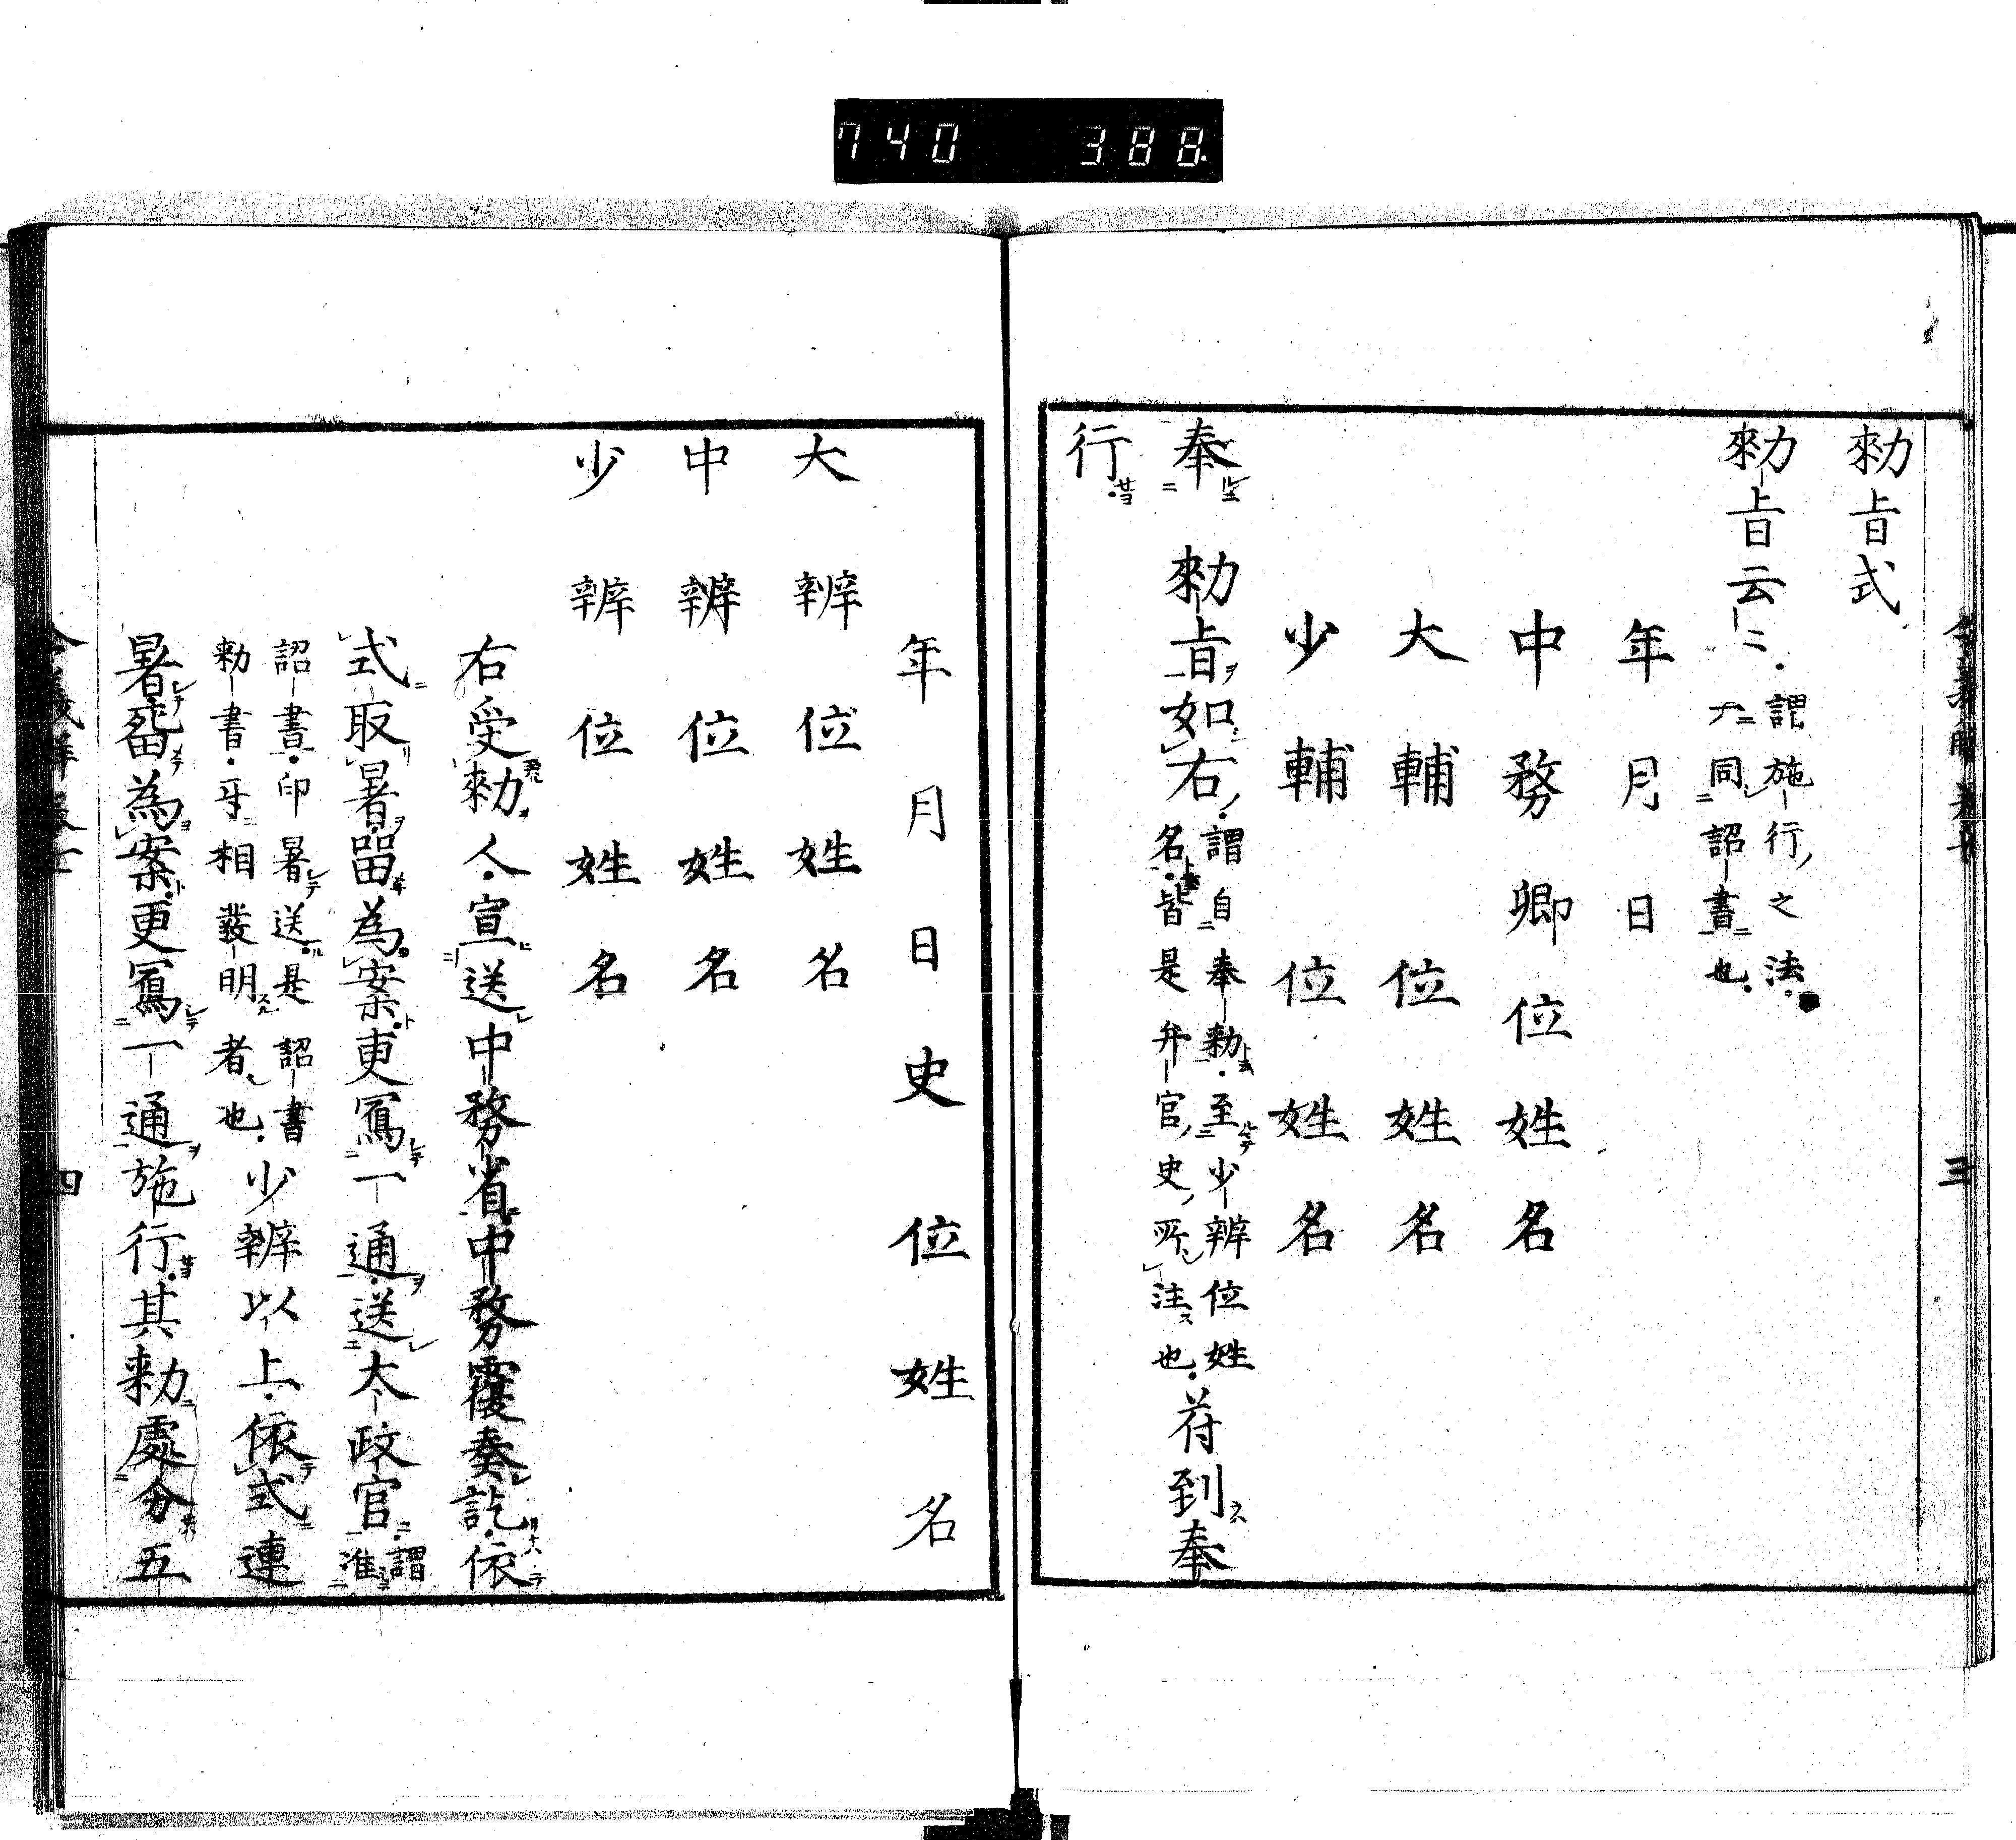 740 388
勅旨式
勅旨云〻謂施行之法
亦同詔書也
年月日
中務卿位姓名
大輔位姓名
少輔位姓名
奉勅旨如右謂自奉勅至少辨位姓
名皆是弁官史所注也符到奉
行
三
年月日史位姓名
大辨位姓名
中辨位姓名
少辨位姓名
右受勅人宣送中務省中務覆奏訖依
式取署留為案更寫一通送太政官謂
准
詔書印署送是詔書
勅書互相發明者也少辨以上依式連
署留為案更寫一通施行其勅處分五
四